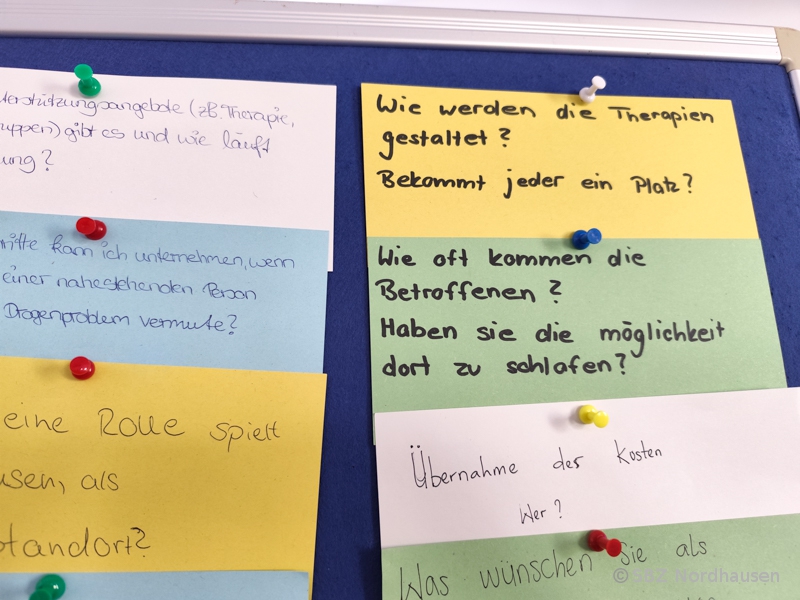 terstützungsangebote (zB. Therapie,
uppen) gibt es und wie läuft
ung?
ritte kann ich unternehmen, wenn
einer nahestehenden Person
Drogenproblem vermute?
eine Rolle spielt
usen, als
tandort?
Wie werden die Therapien
gestaltet?
Bekommt jeder ein Platz?
Wie oft kommen die
Betroffenen?
Haben sie die möglichkeit
dort zu schlafen?
Übernahme der Kosten
Wer?
Was wünschen Sie als
© SBZ Nordhausen